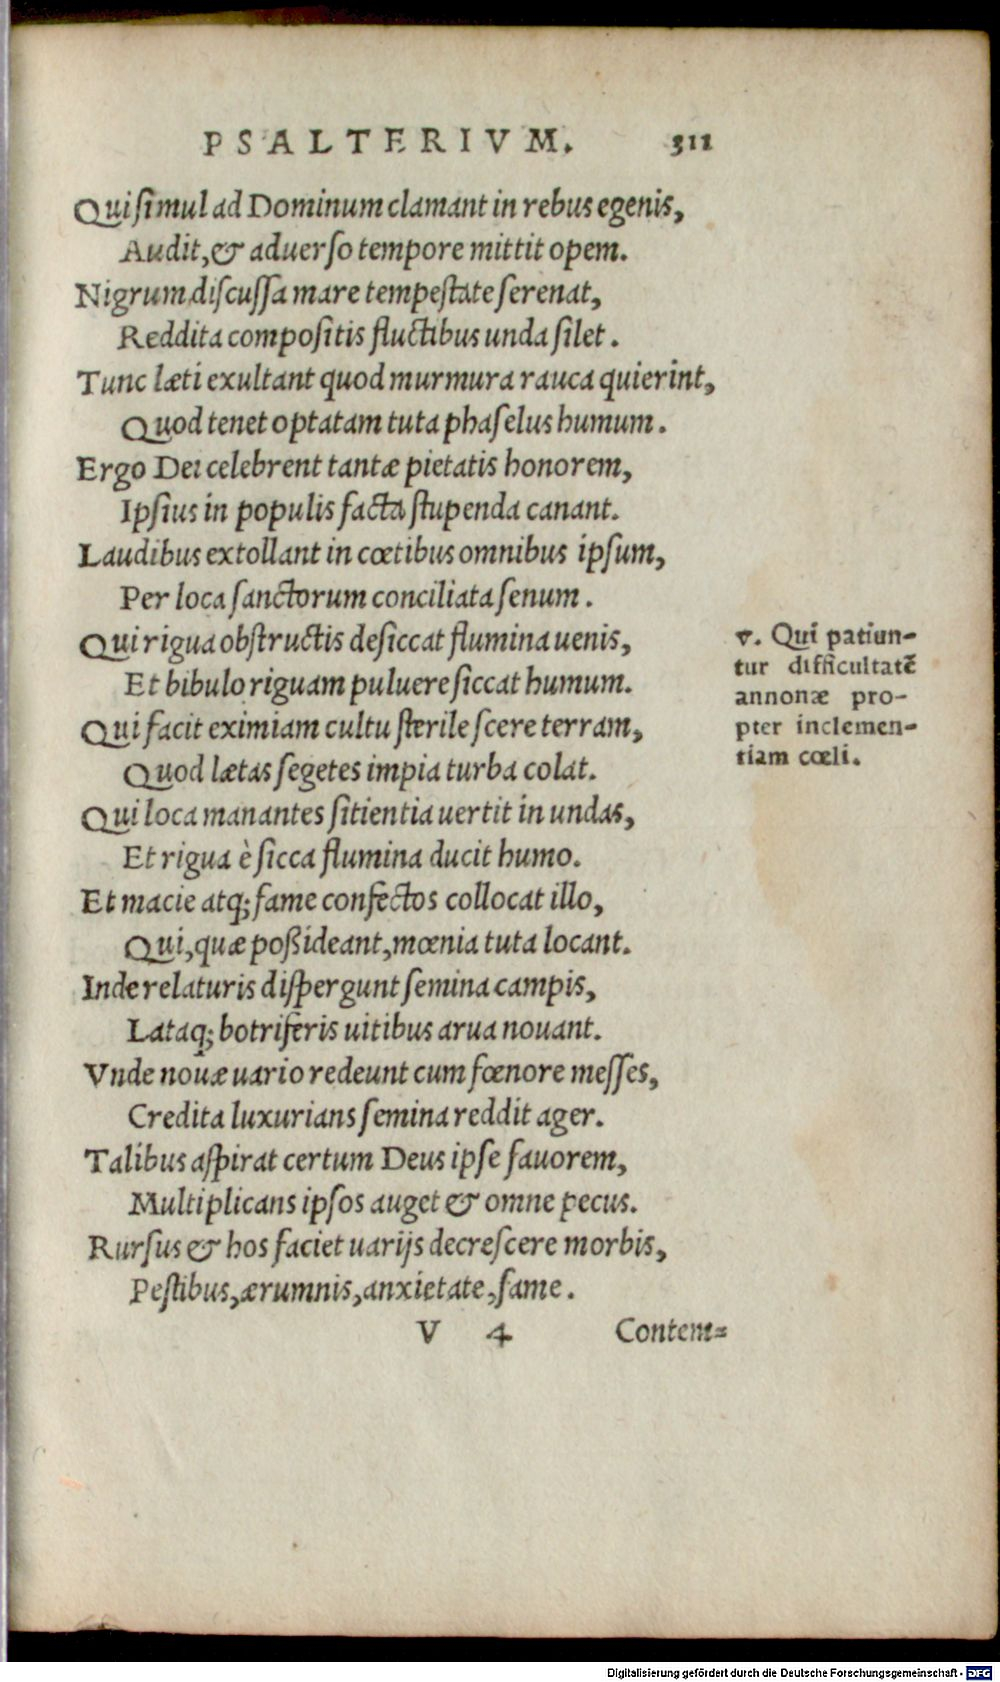 PSALTERIVM. 311
Qui simul ad Dominum clamant in rebus egenis,
Audit, & aduerso tempore mittit opem.
Nigrum discussa mare tempestate serenat,
Reddita compositis fluctibus unda silet.
Tunc læti exultant quod murmura rauca quierint,
Quod tenet optatam tuta phaselus humum.
Ergo Dei celebrent tantæ pietatis honorem,
Ipsius in populis facta stupenda canant.
Laudibus extollant in cœtibus omnibus ipsum,
Per loca sanctorum conciliata senum.
Qui rigua obstructis desiccat flumina uenis,
Et bibulo riguam puluere siccat humum.
Qui facit eximiam cultu sterilescere terram,
Quod lætas segetes impia turba colat.
Qui loca manantes sitientia uertit in undas,
Et rigua è sicca flumina ducit humo.
Et macie atq; fame confectos collocat illo,
Qui, quæ poßideant, mœnia tuta locant.
Inde relaturis dispergunt semina campis,
Lataq; botriferis uitibus arua nouant.
Vnde nouæ uario redeunt cum fœnore messes,
Credita luxurians semina reddit ager.
Talibus aspirat certum Deus ipse fauorem,
Multiplicans ipsos auget & omne pecus.
Rursus & hos faciet uarijs decrescere morbis,
Pestibus, ærumnis, anxietate, fame.
V 4 Contem=
v. Qui patiun-
tur difficultatē
annonæ pro-
pter inclemen-
tiam cœli.
Digitalisierung gefördert durch die Deutsche Forschungsgemeinschaft - DFG